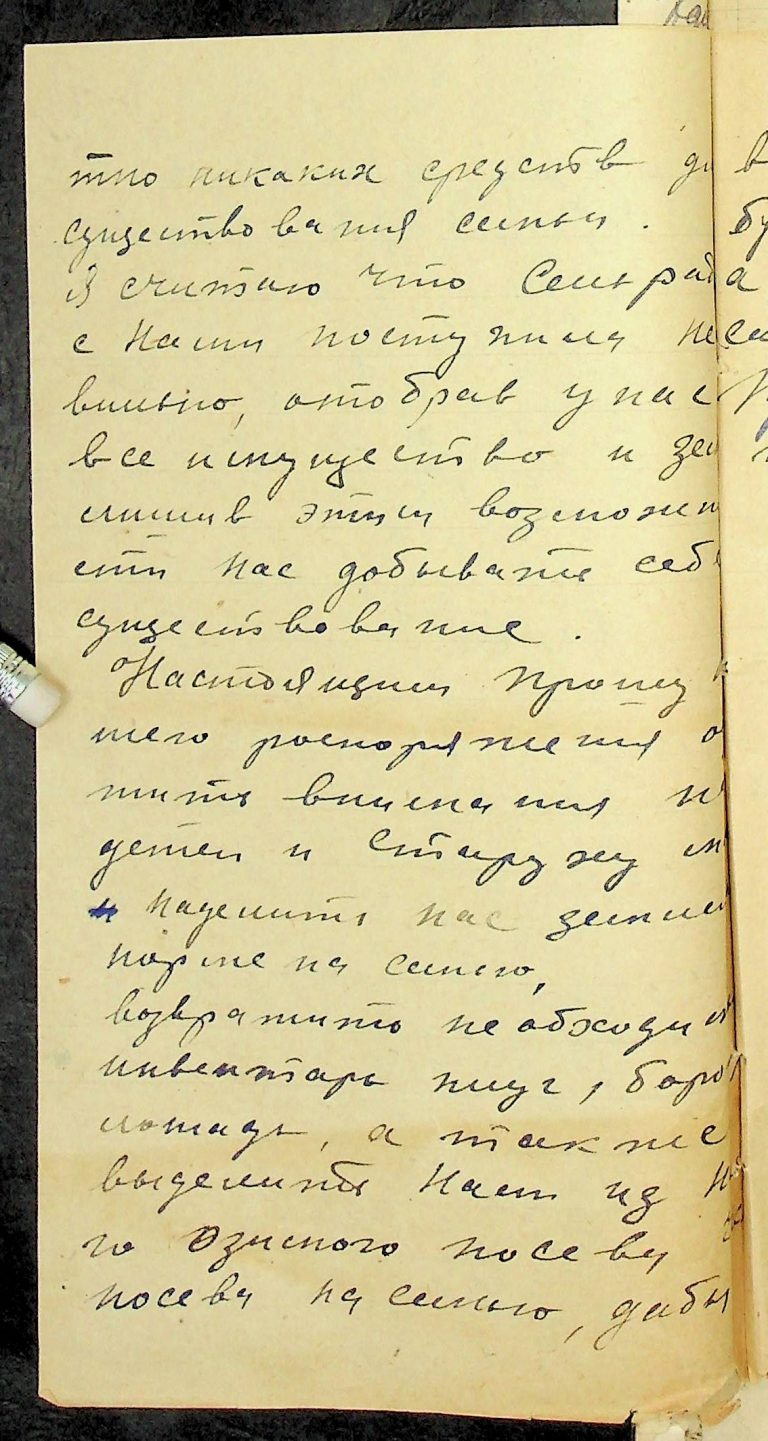 тно никаких средств дл
существования семьи.
Я считаю что Сельрада
с нами поступила не
вильно, отобрав у нас
все имущество и зем
лишив этим возможн
сти нас добывать себе
существование.
Настоящим прошу
шего роспоряжения о
тить внимания н
детей и старуху
наделить нас землей
норме на семью,
возвратить необходим
инвентарь плуг, боро
лошадь, а также
выделить нам из
го озимого посева
посева на семью, дабы